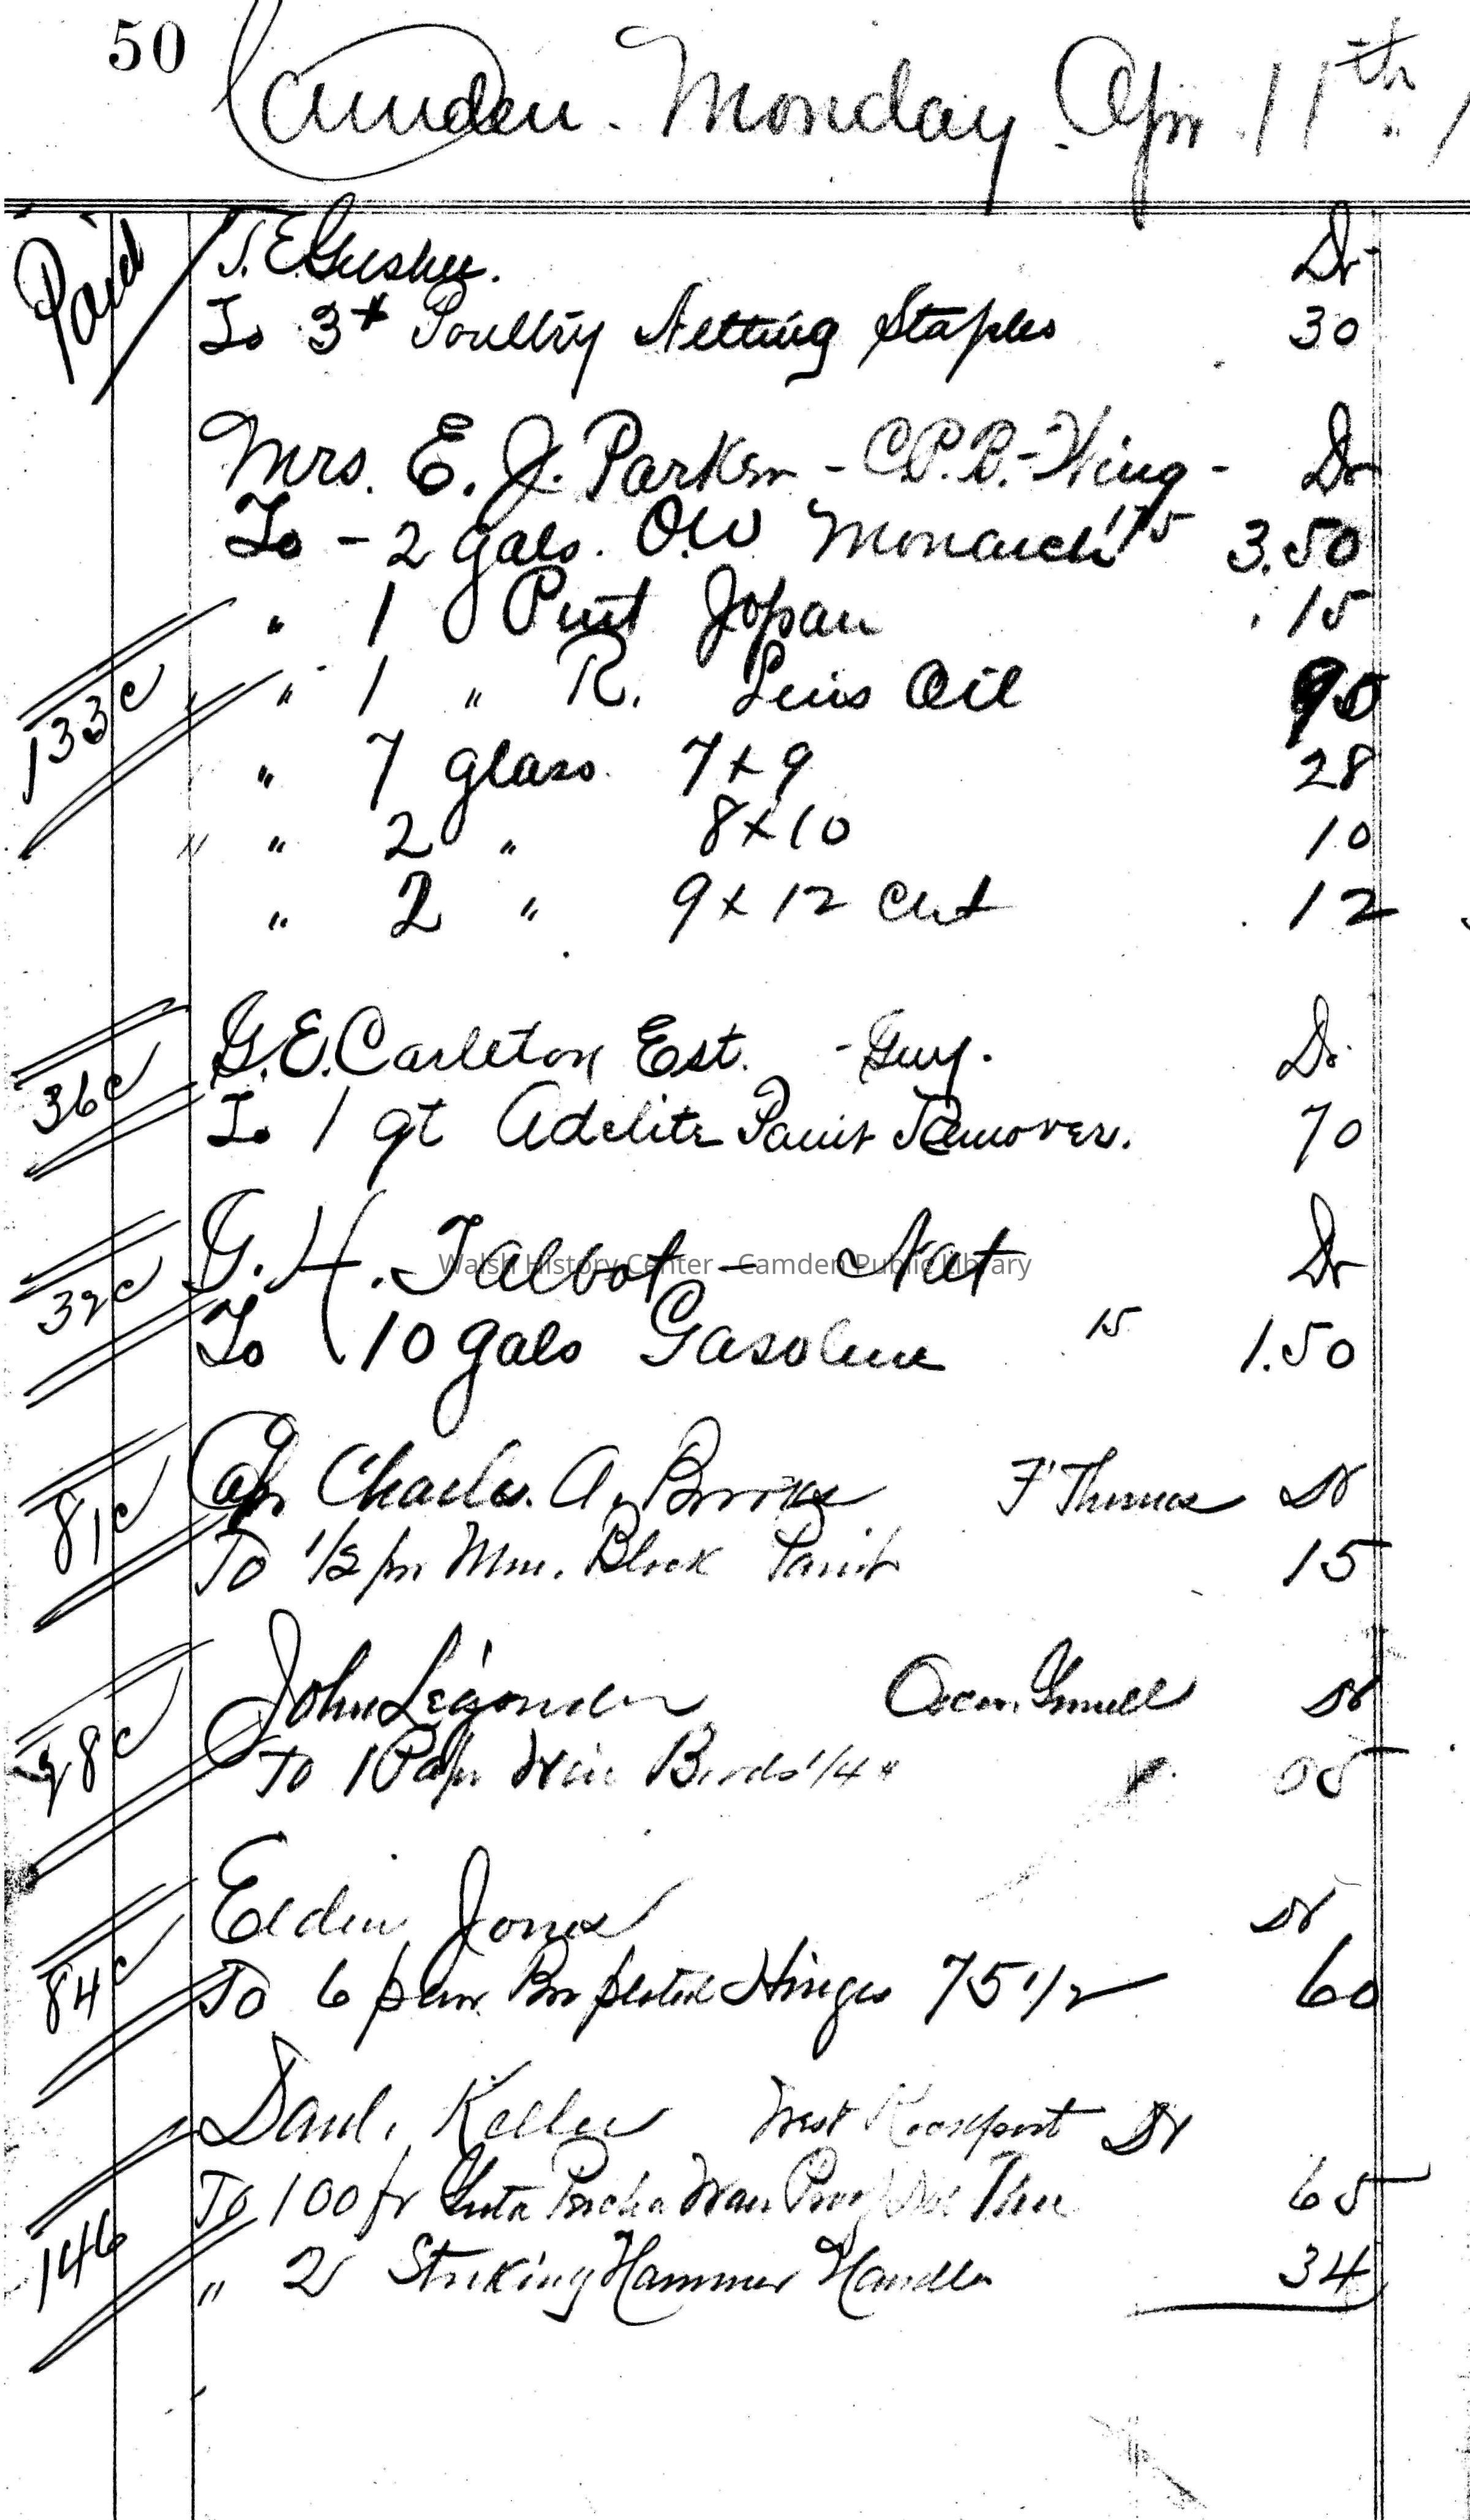 50
Camden. Monday Apr. 11th
Paid
T. E. Gushee. Dr
To 3# Poultry Netting Staples 30
Mrs. E. J. Parker - C.P.B. - Wing - Dr
To - 2 gals. O.W Monarch 175 3.50
" 1 Pint Japan .15
133c
" 1 " R. Lins Oil 90
" 7 glass. 7x9 28
" 2 " 8x10 10
" 2 " 9x12 Cut 12
36c
G. E. Carleton Est. - Guy. Dr
To 1 qt Adelite Paint Remover. 70
G. H. Talbot - Nat Dr
32c
Walsh History Center - Camden Public Library
To 10 gals Gasolene 15 1.50
81c
Cap Charles. A. Brown F Thomas Dr
To 1/2 pn Black Paint 15
John Dr
98c
To 1 1/4" 05
Elden Jones Dr
84c
To 6 pair Brs plated Hinges 75 1/2 60
Danl. Keller West Rockport Dr
To 100 ft Guta Percha 65
146
" 2 Striking Hammer Handles 34